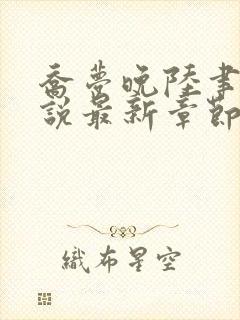 喬夢晚陸事
說最新章節
織布星空